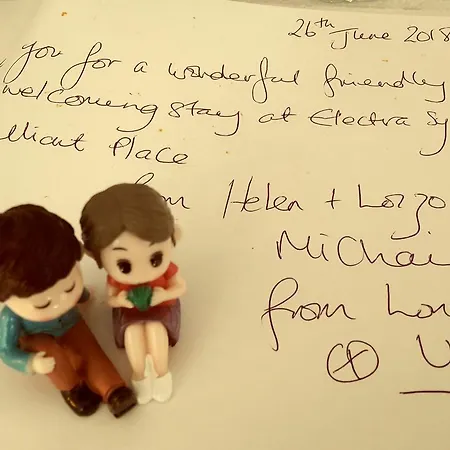 26th June 2018
you for a wonderful friendly
welcoming stay at Electra Sy
lliant Place
om Helen +
Michai
from Lon
U